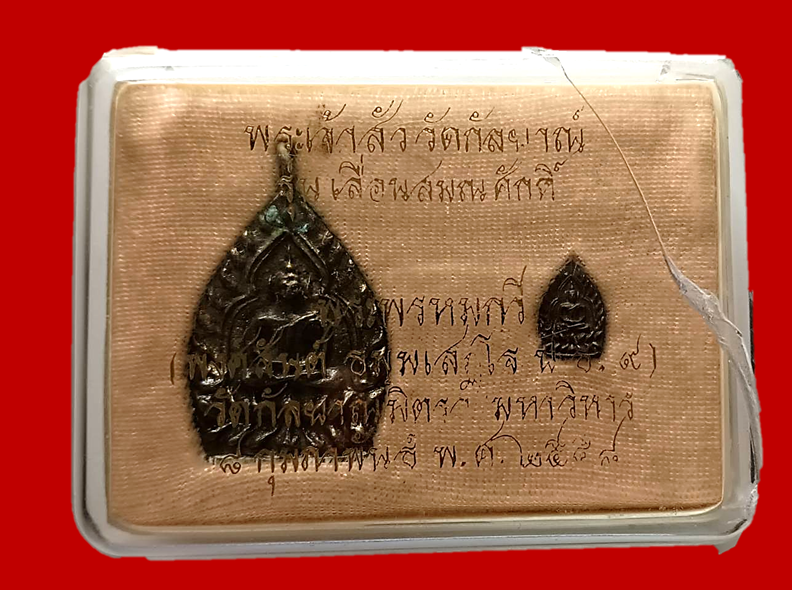 พระเจ้าสัววัดกัลยาณ์
รุ่นเลื่อนสมณศักดิ์
พรหมกวี
(พงศ์สรรค์ ธมฺมเสฏฺโฐ ป.ธ. ๙)
วัดกัลยาณมิตร มหาวิหาร
๘ กุมภาพันธ์ พ.ศ. ๒๕๕๘